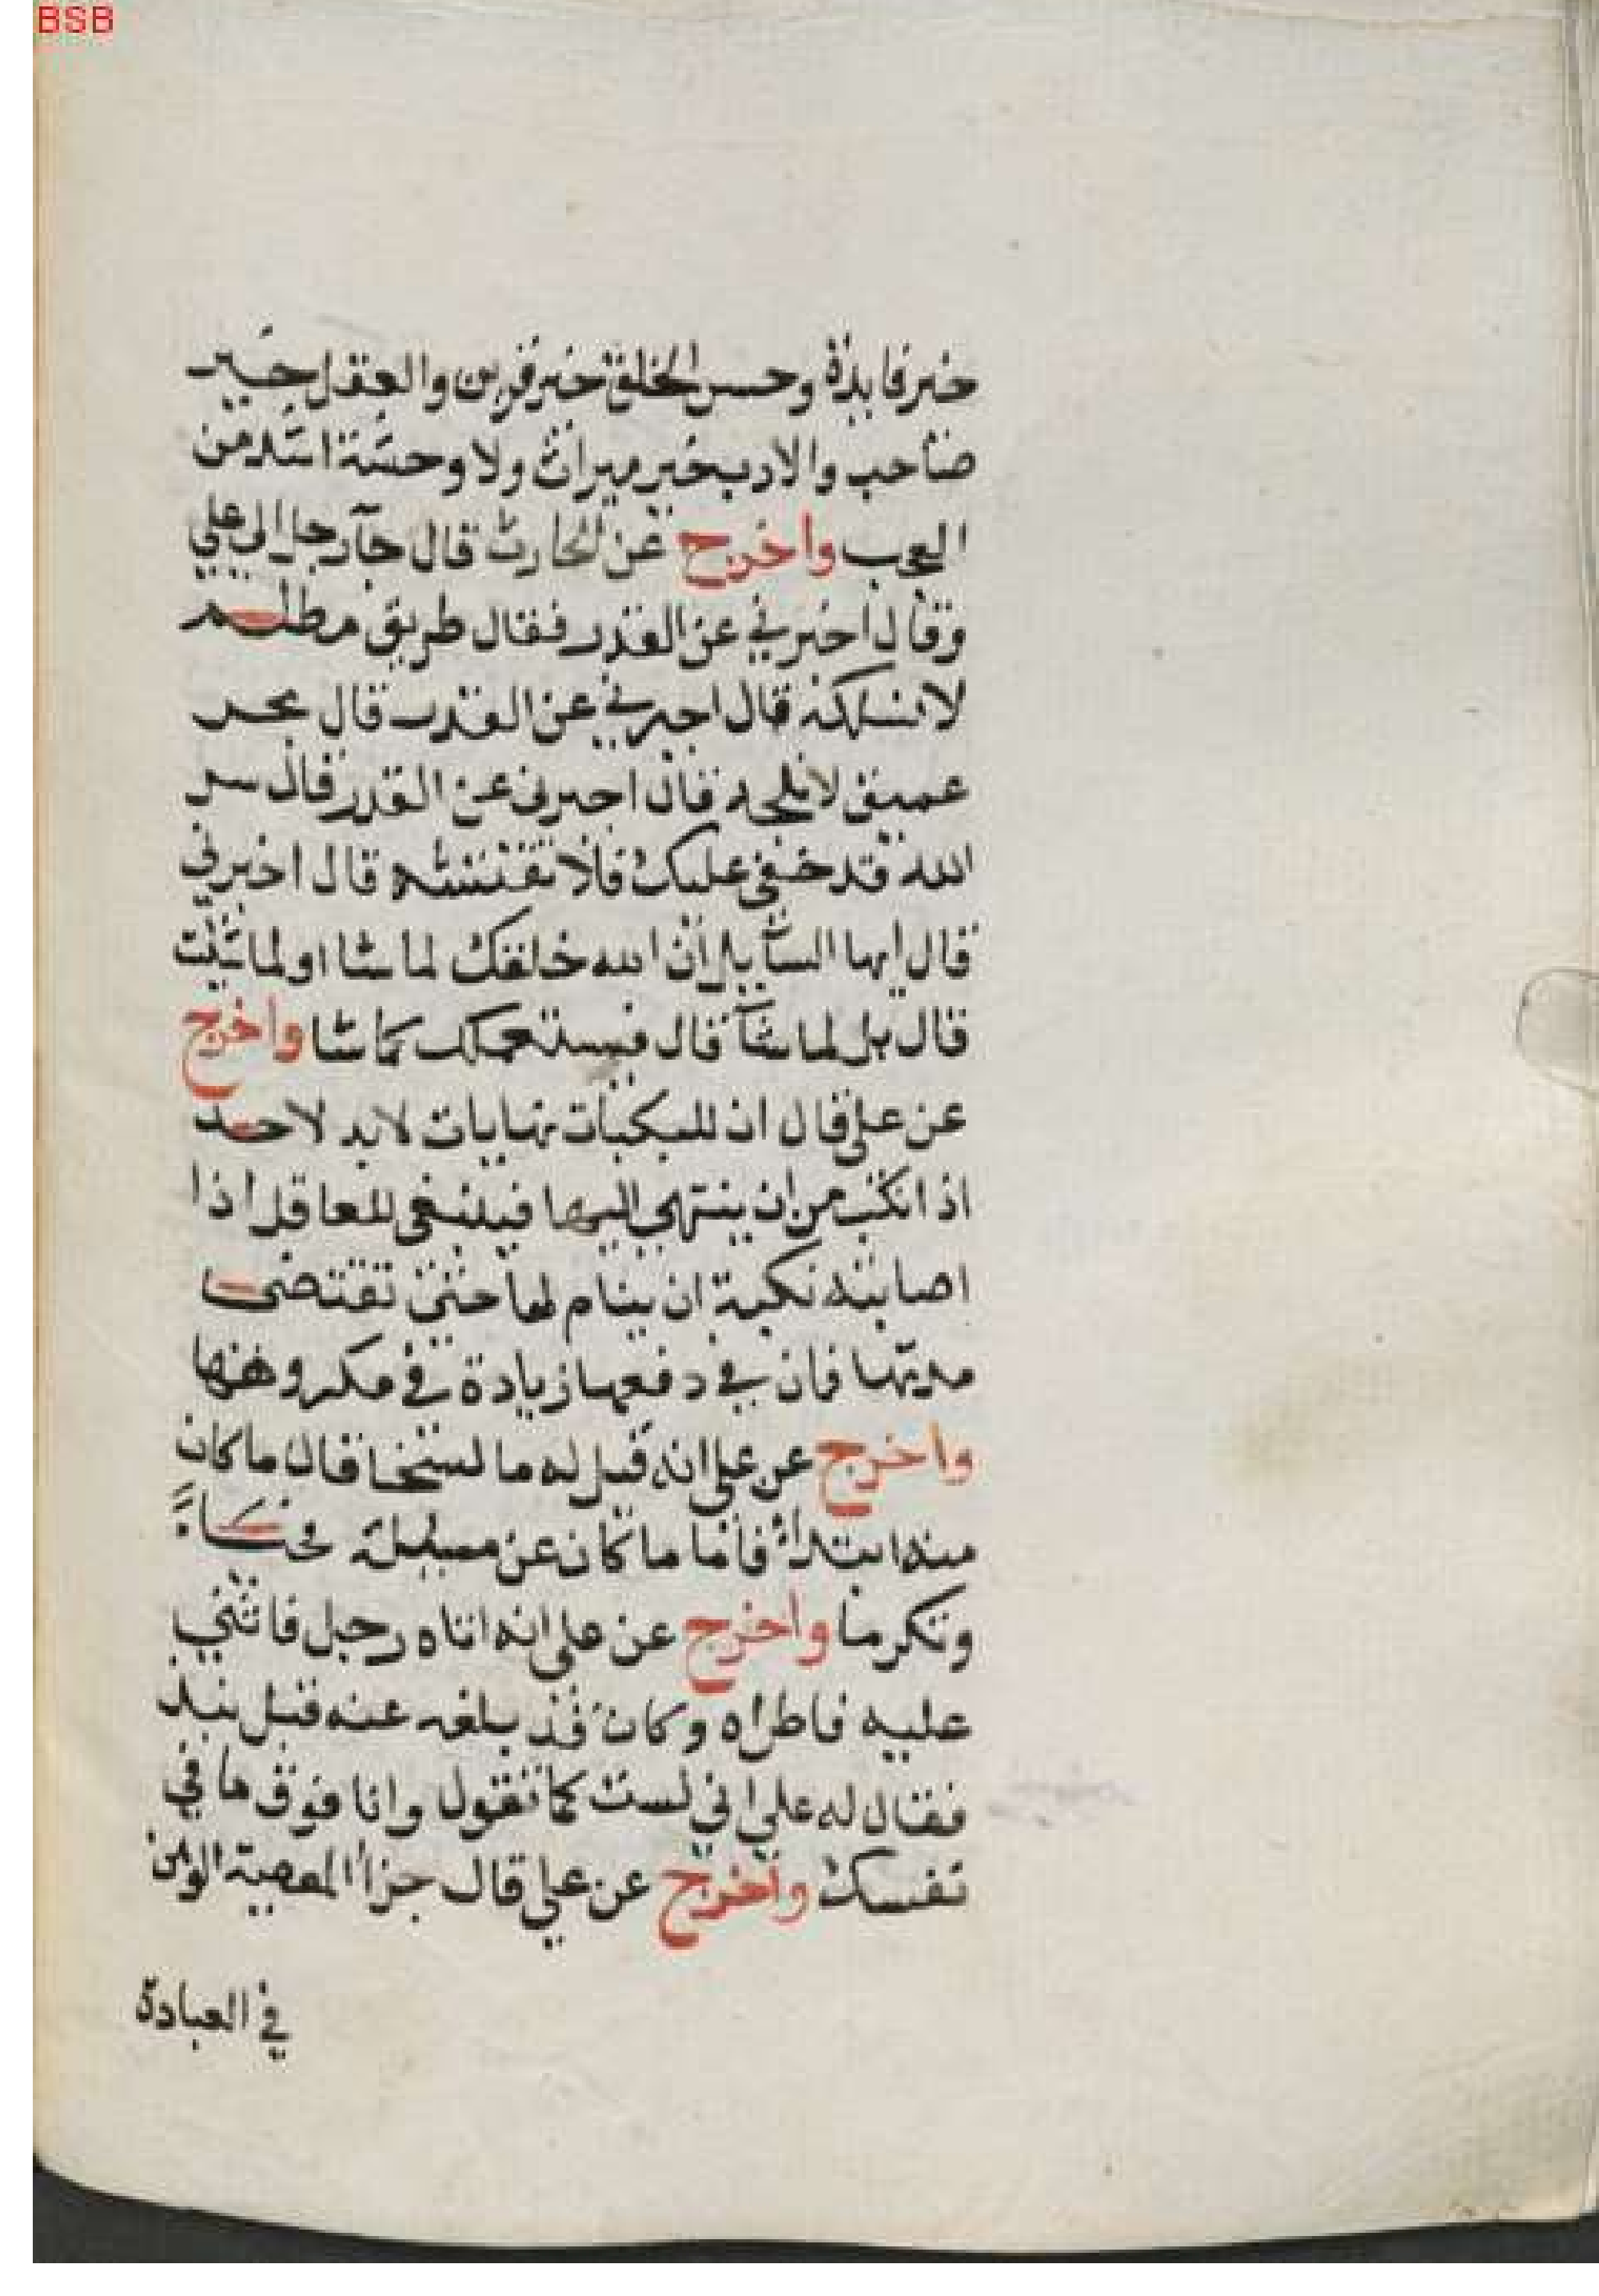 BSB
خير فايدة وحسن الخلق خير قرين والعقل خير
صاحب والادب خير ميراث ولا وحشة اشد من
العجب واخرج عن الحارث قال جآ رجل الى علي
وقال اخبرني عن القدر فقال طريق مظلم
لا تسلكه قال اخبرني عن القدر قال بحر
عميق لا تلجه قال اخبرني عن القدر قال سر
الله قد خفي عليك فلا تفتشه قال اخبرني
قال ايها السآيل ان الله خلقك لما شا او لما شئت
قال بل لما شآ قال فيستعملك كما شا واخرج
عن علي قال ان للنكبات نهايات لا بد لاحد
اذا نكب من ان ينتهي اليها فينبغي للعاقل اذا
اصابته نكبة ان ينام لها حتى تقتضى
مدتها فان في دفعها زيادة في مكروهها
واخرج عن علي انه قيل له ما السخا قال ما كان
منه ابتداء فاما ما كان عن مسيلة فحياءً
وتكرما واخرج عن علي انه اتاه رجل فاثنى
عليه فاطراه وكان قد بلغه عنه قبل
فقال له علي اني لست كما تقول وانا فوق ما في
نفسك واخرج عن علي قال جزا المعصية الوهن
في العبادة